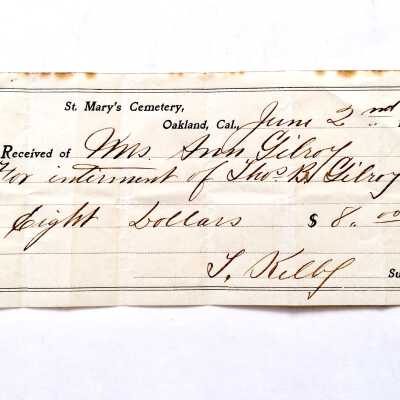 St. Mary's Cemetery,
Oakland, Cal., June 2nd
Received of Mrs Ann Gilroy
For interment of Thos B. Gilroy
Eight Dollars $ 8.00
T. Kelby
Su